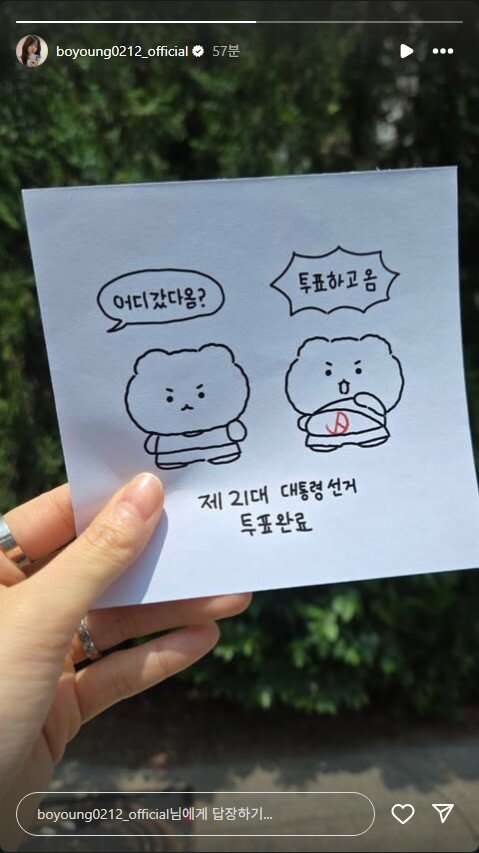 boyoung0212_official 57분
어디갔다옴?
투표하고 옴
제 21대 대통령 선거
투표완료
boyoung0212_official님에게 답장하기...